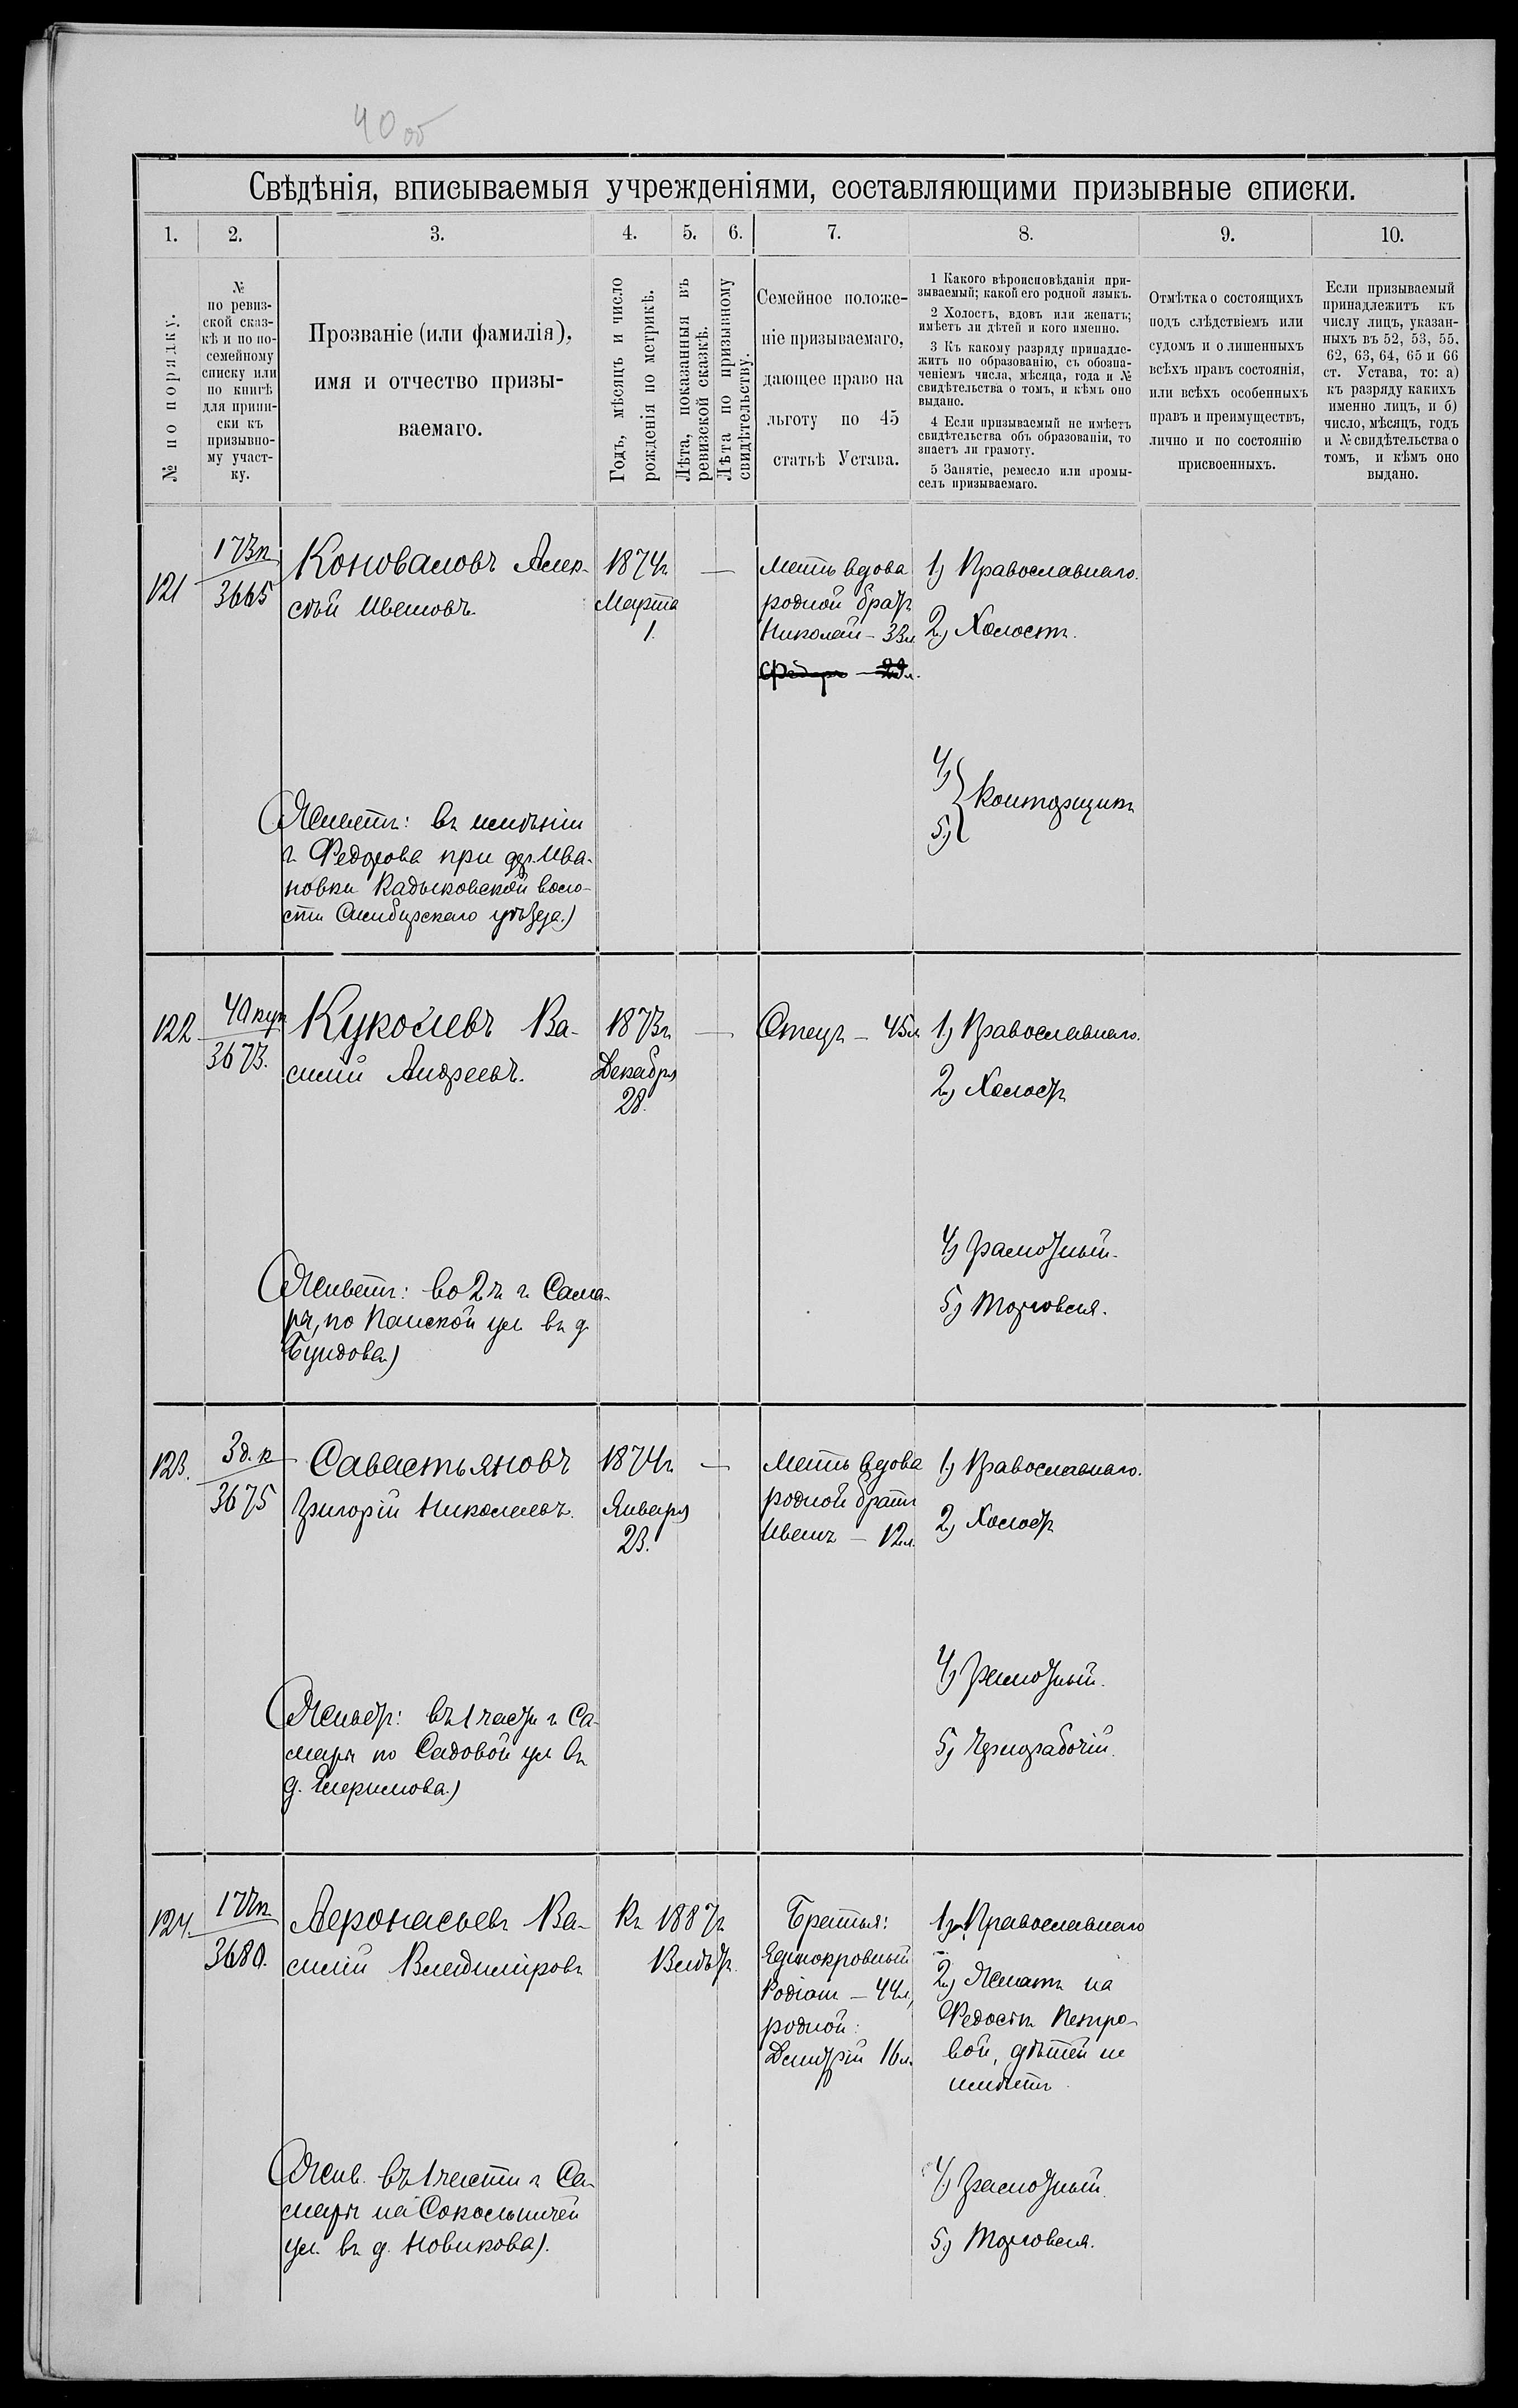 40 об
Свѣдѣнія, вписываемыя учрежденіями, составляющими призывные списки.
1. 2. 3. 4. 5. 6. 7. 8. 9. 10.
№ по порядку.
№
по ревиз-
ской сказ-
кѣ и по по-
семейному
списку или
по книгѣ
для припи-
ски къ
призывно-
му участ-
ку.
Прозваніе (или фамилія),
имя и отчество призы-
ваемаго.
Годъ, мѣсяцъ и число
рожденія по метрикѣ.
Лѣта, показанныя въ
ревизской сказкѣ.
Лѣта по призывному
свидѣтельству.
Семейное положе-
ніе призываемаго,
дающее право на
льготу по 45
статьѣ Устава.
1 Какого вѣроисповѣданія при-
зываемый; какой его родной языкъ.
2 Холостъ, вдовъ или женатъ;
имѣетъ ли дѣтей и кого именно.
3 Къ какому разряду принадле-
житъ по образованію, съ обозна-
ченіемъ числа, мѣсяца, года и №
свидѣтельства о томъ, и кѣмъ оно
выдано.
4 Если призываемый не имѣетъ
свидѣтельства объ образованіи, то
знаетъ ли грамоту.
5 Занятіе, ремесло или промы-
селъ призываемаго.
Отмѣтка о состоящихъ
подъ слѣдствіемъ или
судомъ и о лишенныхъ
всѣхъ правъ состоянія,
или всѣхъ особенныхъ
правъ и преимуществъ,
лично и по состоянію
присвоенныхъ.
Если призываемый
принадлежитъ къ
числу лицъ, указан-
ныхъ въ 52, 53, 55,
62, 63, 64, 65 и 66
ст. Устава, то: а)
къ разряду какихъ
именно лицъ, и б)
число, мѣсяцъ, годъ
и № свидѣтельства о
томъ, и кѣмъ оно
выдано.
121
173п
3665
Коноваловъ Алек-
сѣй Ивановъ.
1874г
Марта
1.
—
Мать вдова
родной братъ
Николай – 33л.
Федоръ – 29л.
1) Православнаго.
2) Холостъ.
4)
5)
Конторщикъ
(Живетъ: въ имѣніи
г. Федорова при дер. Ива-
новки Кадыковской воло-
сти Симбирскаго уѣзда.)
122.
40 куп
3673.
Куколевъ Ва-
силій Андреевъ.
1873г
Декабря
28.
—
Отецъ – 45л
1) Православнаго.
2) Холостъ
4) Грамотный.
5) Торговля.
(Живетъ: во 2 ч. г. Сама-
рѣ, по Панской ул. въ д.
Бундова.)
123.
3д.к
3675
Савастьяновъ
Григорій Николаевъ.
1874г
Января
23.
—
Мать вдова
родной братъ
Иванъ – 12л.
1) Православнаго.
2) Холостъ
4) Грамотный.
5) Чернорабочій.
(Живетъ: въ 1 части г. Са-
марѣ по Садовой ул въ
124.
177п
3680.
Афонасьевъ Ва-
силій Владиміровъ
Къ 1887г
Видъ
Братья:
Единокровный
Родіонъ – 44л,
родной:
Дмитрій 16л.
1) Православнаго
2) Женатъ на
Федосьѣ Петро-
вой, дѣтей не
имѣетъ.
4) Грамотный.
5) Торговля.
(Жив. въ 1 части г. Са-
марѣ на Сокольничей
ул. въ д. Новикова).